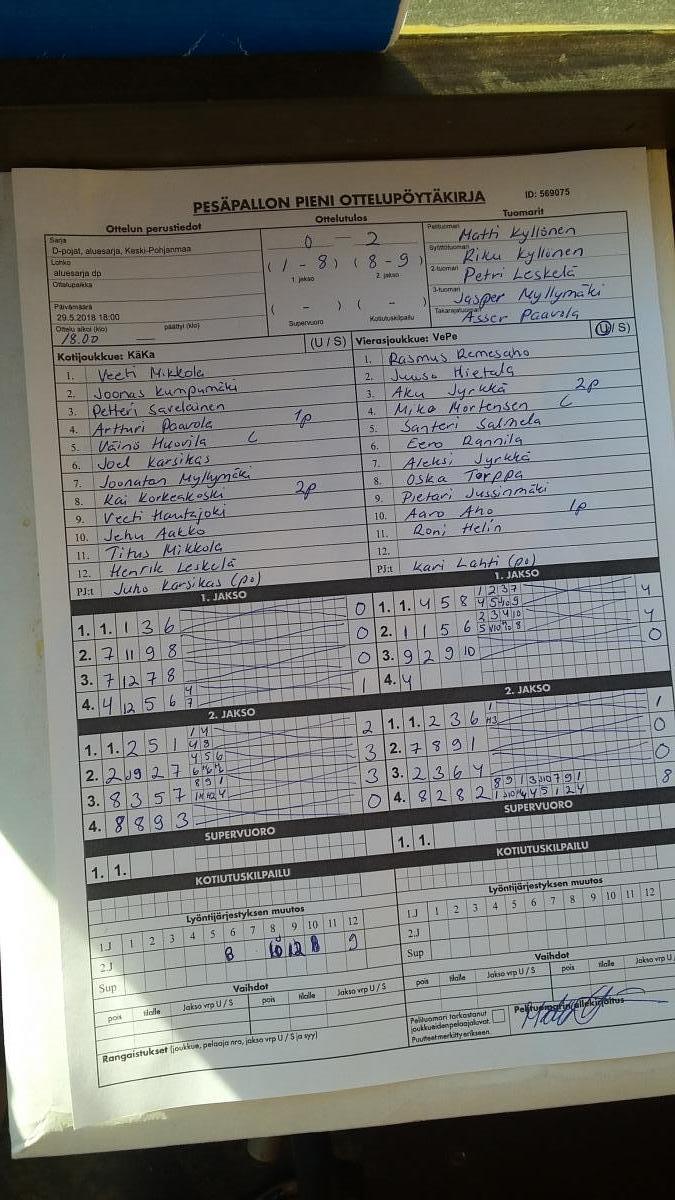 PESÄPALLON PIENI OTTELUPÖYTÄKIRJA
ID: 569075
Ottelun perustiedot
Ottelutulos
Tuomarit
Sarja
D-pojat, aluesarja, Keski-Pohjanmaa
Lohko
aluesarja dp
Ottelupaikka
Päivämäärä
29.5.2018 18:00
Ottelu alkoi (klo)
päättyi (klo)
18.00
0 - 2
(1 - 8) (8 - 9)
1. jakso
2. jakso
( - ) ( - )
Supervuoro
Kotiutuskilpailu
Pelituomari
Matti Kyllönen
Syöttötuomari
Riku Kyllönen
2-tuomari
Petri Leskelä
3-tuomari
Jasper Myllymäki
Takarajatuomari
Asser Paavola
Kotijoukkue: KäKa
(U / S)
1. Veeti Mikkola
2. Joonas Kumpumäki
3. Petteri Savelainen
4. Artturi Paavola 1p
5. Väinö Huovila C
6. Joel Karsikas
7. Joonatan Myllymäki
8. Kai Korkeakoski 2p
9. Veeti Hautajoki
10. Jehu Aakko
11. Titus Mikkola
12. Henrik Leskelä
PJ:t Juho Karsikas (po)
Vierasjoukkue: VePe
(U / S)
1. Rasmus Remesaho
2. Juuso Hietala
3. Aku Jyrkkä 2p
4. Mika Mortensen C
5. Santeri Salmela
6. Eero Rannila
7. Aleksi Jyrkkä
8. Oska Torppa
9. Pietari Jussinmäki
10. Aaro Aho 1p
11. Roni Helin
12.
PJ:t Kari Lahti (po)
1. JAKSO
1. 1. 1 3 6 0
2. 7 11 9 8 0
3. 7 12 7 8 0
4. 4 12 5 6 1
2. JAKSO
1. 1. 2 5 1 2
2. 2 9 2 7 3
3. 8 3 5 7 3
4. 8 8 9 3 0
SUPERVUORO
1. 1.
KOTIUTUSKILPAILU
1. JAKSO
1. 1. 4 5 8 4
2. 1 1 5 6 4
3. 9 2 9 10 0
4. 4
2. JAKSO
1. 1. 2 3 6 1
2. 7 8 9 1 0
3. 2 3 6 4 0
4. 8 2 8 2 8
SUPERVUORO
1. 1.
KOTIUTUSKILPAILU
Lyöntijärjestyksen muutos
1.J 1 2 3 4 5 6 7 8 9 10 11 12
2.J 8 10 12 9
Sup
Vaihdot
pois tilalle Jakso vrp U / S pois tilalle Jakso vrp U / S
Rangaistukset (joukkue, pelaaja nro, jakso vrp U / S ja syy)
Lyöntijärjestyksen muutos
1.J 1 2 3 4 5 6 7 8 9 10 11 12
2.J
Sup
Vaihdot
pois tilalle Jakso vrp U / S pois tilalle Jakso vrp
Pelituomari tarkastanut
joukkueiden pelaajaluvat.
Puutteet merkitty erikseen.
Pelituomarin allekirjoitus